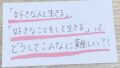 「好きな人と生きる」
「好きなことをして生きる」って
どうしてこんなに難しい?!